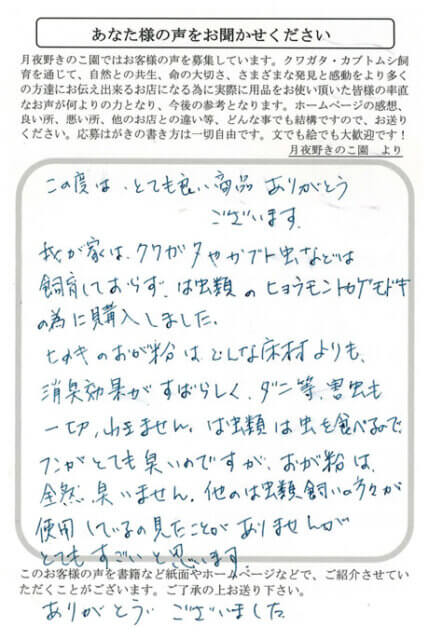 あなた様の声をお聞かせください
月夜野きのこ園ではお客様の声を募集しています。クワガタ・カブトムシ飼
育を通じて、自然との共生、命の大切さ、さまざまな発見と感動をより多く
の方達にお伝え出来るお店になる為に実際に用品をお使い頂いた皆様の率直
なお声が何よりの力となり、今後の参考となります。ホームページの感想、
良い所、悪い所、他のお店との違い等、どんな事でも結構ですので、お送り
ください。応募はがきの書き方は一切自由です。文でも絵でも大歓迎です！
月夜野きのこ園 より
この度は、とても良い商品 ありがとう
ございます。
我が家は、クワガタやカブト虫などは
飼育しておらず、は虫類のヒョウモントカゲモドキ
の為に購入しました。
ヒノキのおが粉は、どんな床材よりも、
消臭効果がすばらしく、ダニ等、害虫も
一切、わきません。は虫類は虫を食べるので、
フンがとても臭いのですが、おが粉は、
全然、臭いません。他のは虫類飼いの方々が
使用しているの見たことがありませんが
とてもすごいと思います。
このお客様の声を書籍など紙面やホームページなどで、ご紹介させてい
ただくことがございます。ご了承の上お送り下さい。
ありがとうございました。